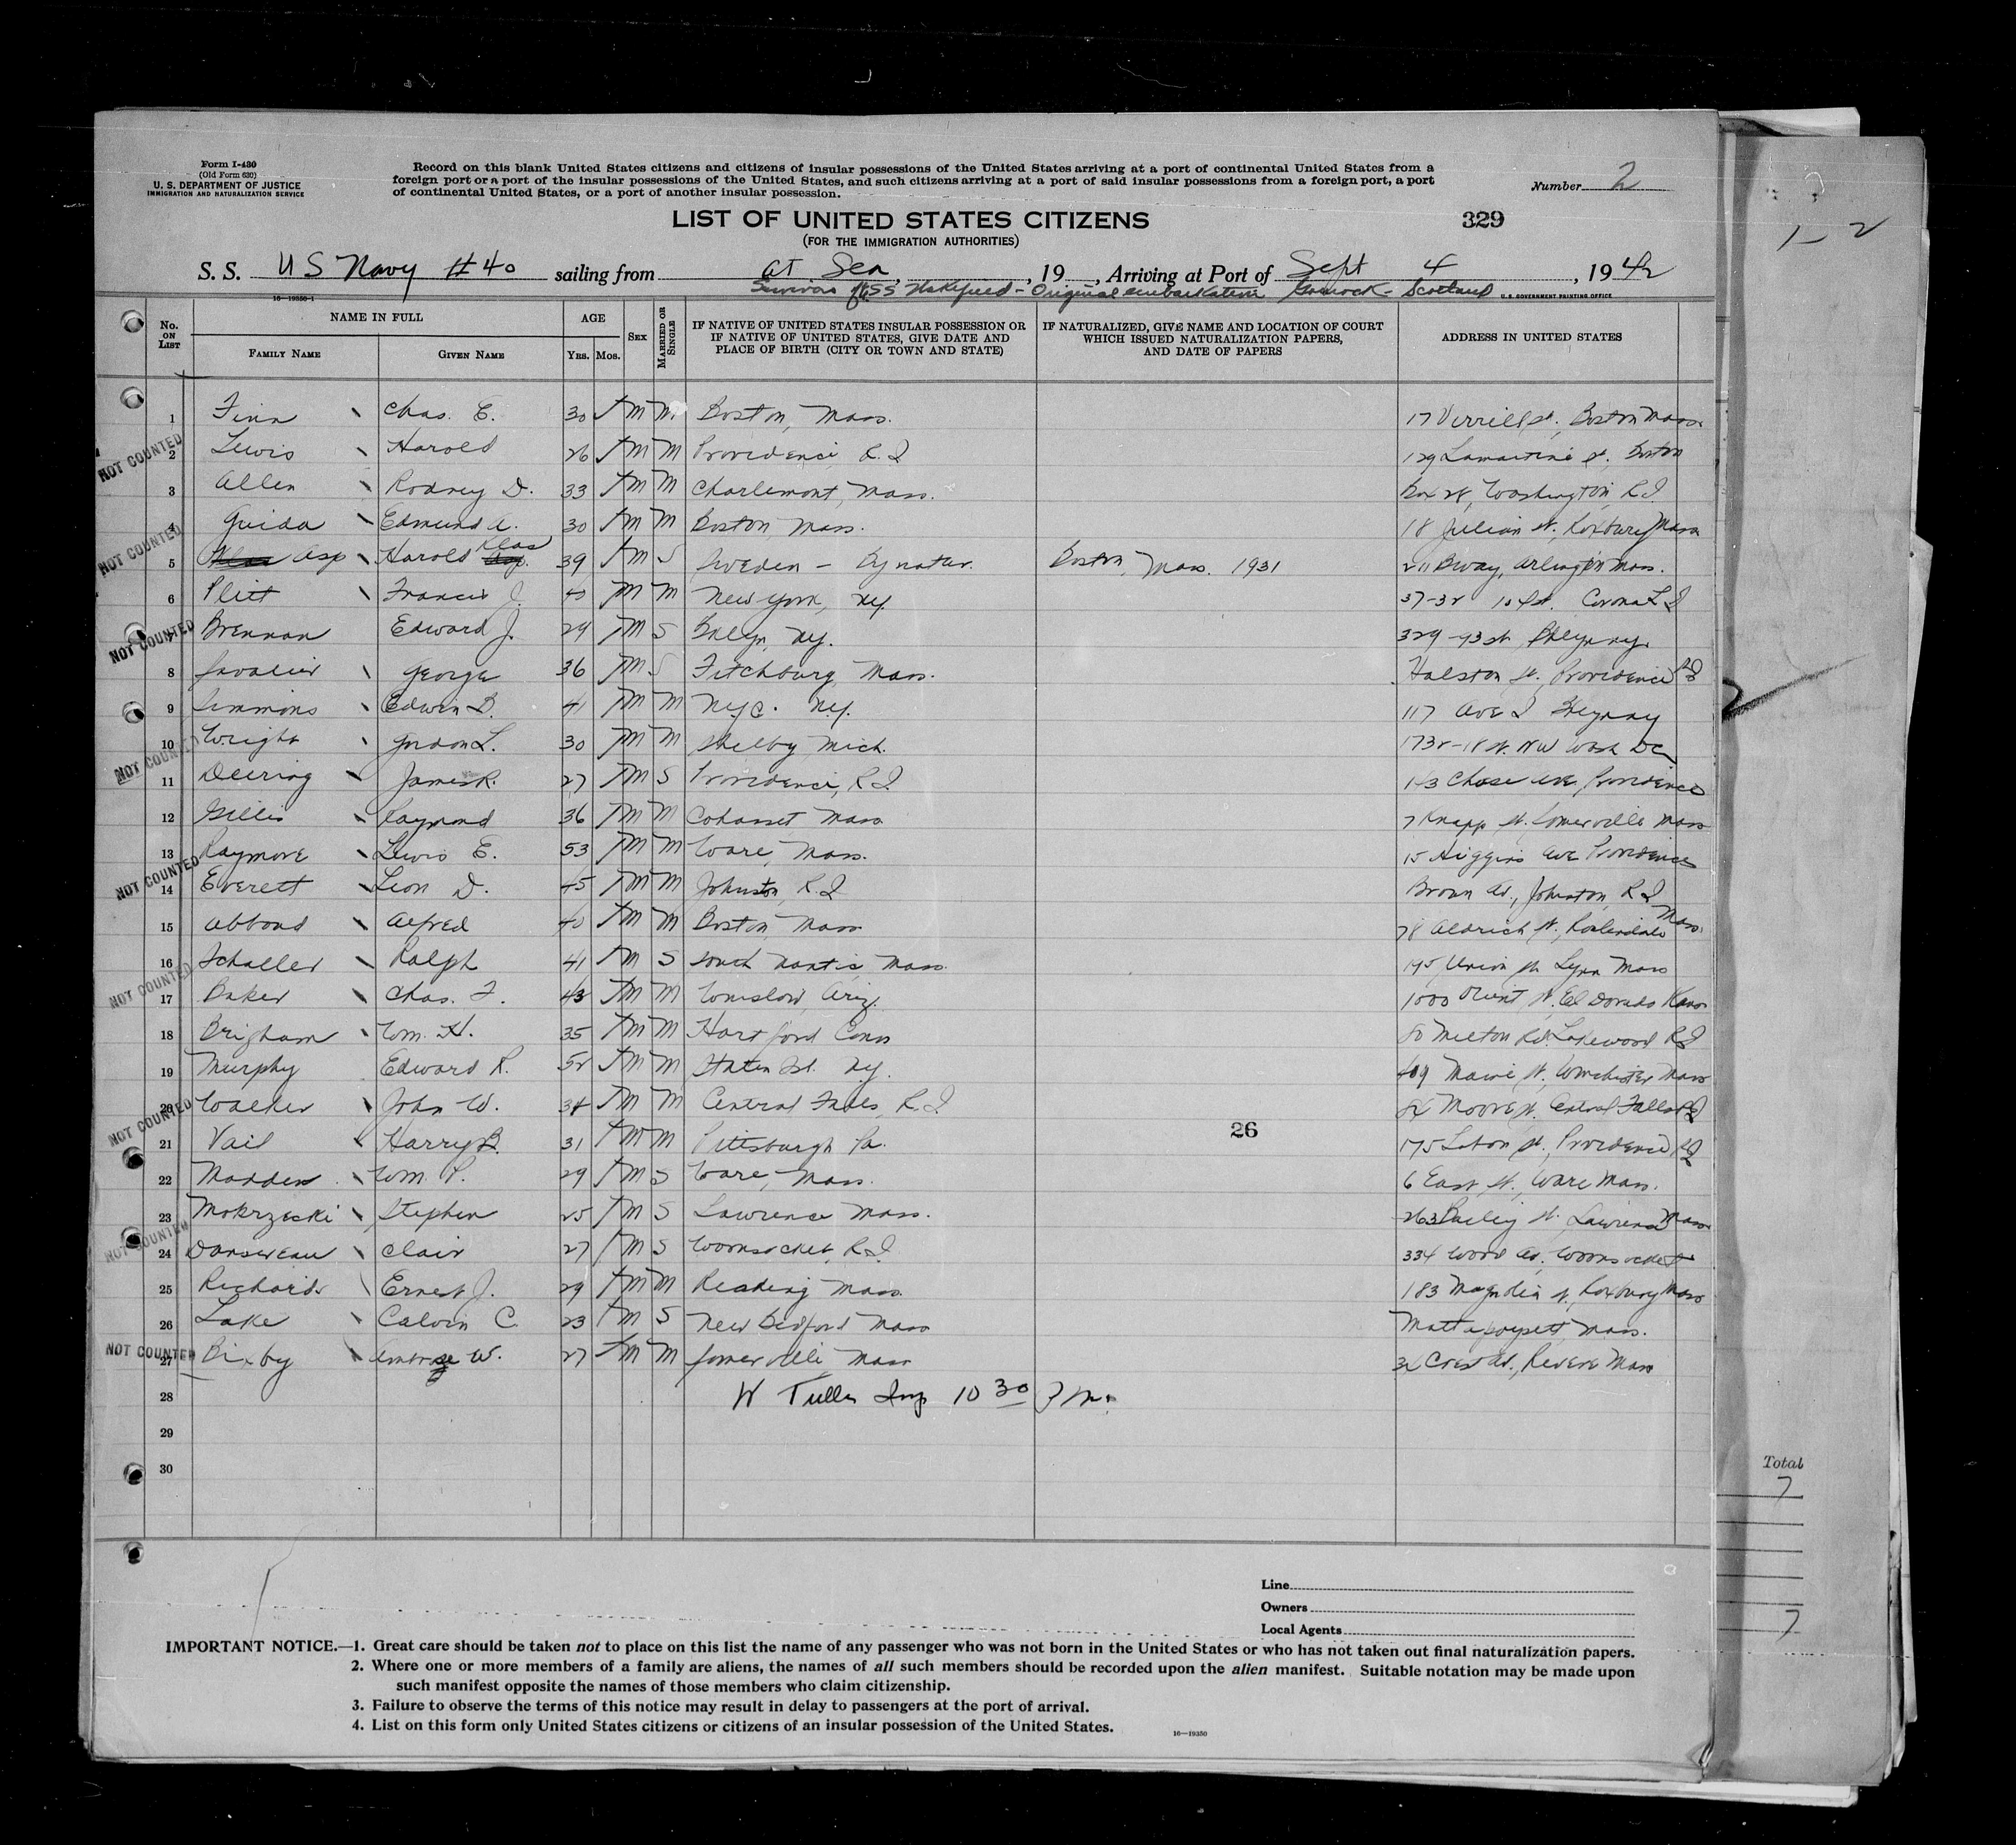 Form I-430
(Old Form 630)
U. S. DEPARTMENT OF JUSTICE
IMMIGRATION AND NATURALIZATION SERVICE
Record on this blank United States citizens and citizens of insular possessions of the United States arriving at a port of continental United States from a
foreign port or a port of the insular possessions of the United States, and such citizens arriving at a port of said insular possessions from a foreign port, a port
of continental United States, or a port of another insular possession.
Number 2
LIST OF UNITED STATES CITIZENS
(FOR THE IMMIGRATION AUTHORITIES)
329
S. S. U S Navy #40 sailing from at Sea, , 19 , Arriving at Port of Sept 4 , 1942
Survivors of SS Wakefield - Original embarkation Gourock - Scotland
16-19350-1
U. S. GOVERNMENT PRINTING OFFICE
No. ON LIST
NAME IN FULL
FAMILY NAME GIVEN NAME
AGE
YRS. MOS.
SEX
MARRIED OR SINGLE
IF NATIVE OF UNITED STATES INSULAR POSSESSION OR
IF NATIVE OF UNITED STATES, GIVE DATE AND
PLACE OF BIRTH (CITY OR TOWN AND STATE)
IF NATURALIZED, GIVE NAME AND LOCATION OF COURT
WHICH ISSUED NATURALIZATION PAPERS,
AND DATE OF PAPERS
ADDRESS IN UNITED STATES
1 Finn Chas. E. 30 M M Boston, Mass. 17 Verrill St., Boston Mass.
NOT COUNTED
2 Lewis Harold 26 M M Providence R.I 129 Lamartine St. Boston
3 Allen Rodney D. 33 M M Charlemont, Mass. Box 28, Washington, R.I.
4 Guida Edmund A. 30 M M Boston, Mass. 18 Julian St. Roxbury Mass
NOT COUNTED
5 Asp Harold Klas 39 M S Sweden - By natur. Boston, Mass. 1931 211 Bway, Arlington Mass.
6 Plitt Francis J. 40 M M New York, NY. 37-32 104 St. Corona L I
NOT COUNTED
7 Brennan Edward J. 29 M S Bklyn, NY. 329-93 St Bklyn ny
8 Savalier George 36 M S Fitchburg, Mass. Halston St. Providence RI
9 Simmons Edwin B. 41 M M NYC. NY. 117 Ave I Bklyn ny
10 Wright Gordon L. 30 M M Shelby Mich. 1732-18 St. NW Wash DC
NOT COUNTED
11 Deering James R. 27 M S Providence, R.I. 143 Chase Ave. Providence
12 Gillis Raymond 36 M M Cohasset Mass 7 Knapp St. Somerville Mass
13 Raymore Lewis E. 53 M M Ware, Mass. 15 Higgins Ave Providence
NOT COUNTED
14 Everett Leon D. 45 M M Johnston, R.I Brown Av., Johnston, R I
15 Abboud Alfred 40 M M Boston, Mass 78 Aldrich St., Roslindale Mass.
16 Schaller Ralph 41 M S South Natick Mass. 195 Union St Lynn Mass
NOT COUNTED
17 Baker Chas. F. 43 M M Winslow, Ariz. 1000 Orient St. El Dorado Kans
18 Brigham Wm. H. 35 M M Hartford Conn 80 Melton Rd. Lakewood RI
19 Murphy Edward R. 52 M M Staten Isl. NY. 409 Main St. Winchester Mass
20 Walker John W. 34 M M Central Falls, R.I Moore St. Central Falls RI
NOT COUNTED
26
21 Vail Harry B. 31 M M Pittsburgh Pa. 175 Laban St., Providence RI
22 Madden Wm. P. 29 M S Ware, Mass. 6 East St., Ware Mass.
23 Mokrzecki Stephen 25 M S Lawrence Mass. 263 Bailey St. Lawrence Mass
NOT COUNTED
24 Dansereau Clair 27 M S Woonsocket, R.I. 334 Wood Av. Woonsocket
25 Richards Ernest J. 29 M M Reading Mass. 183 Magnolia St., Roxbury Mass
26 Lake Calvin C. 23 M S New Bedford Mass Mattapoisett Mass.
NOT COUNTED
27 Bixby Ambrose W. 27 M M Somerville Mass Crest Av., Revere Mass
28 W Tuller Insp 10 30 P M.
29
30
1-2
Total
7
7
Line
Owners
Local Agents
IMPORTANT NOTICE.—1. Great care should be taken not to place on this list the name of any passenger who was not born in the United States or who has not taken out final naturalization papers.
2. Where one or more members of a family are aliens, the names of all such members should be recorded upon the alien manifest. Suitable notation may be made upon
such manifest opposite the names of those members who claim citizenship.
3. Failure to observe the terms of this notice may result in delay to passengers at the port of arrival.
4. List on this form only United States citizens or citizens of an insular possession of the United States.
16—19350